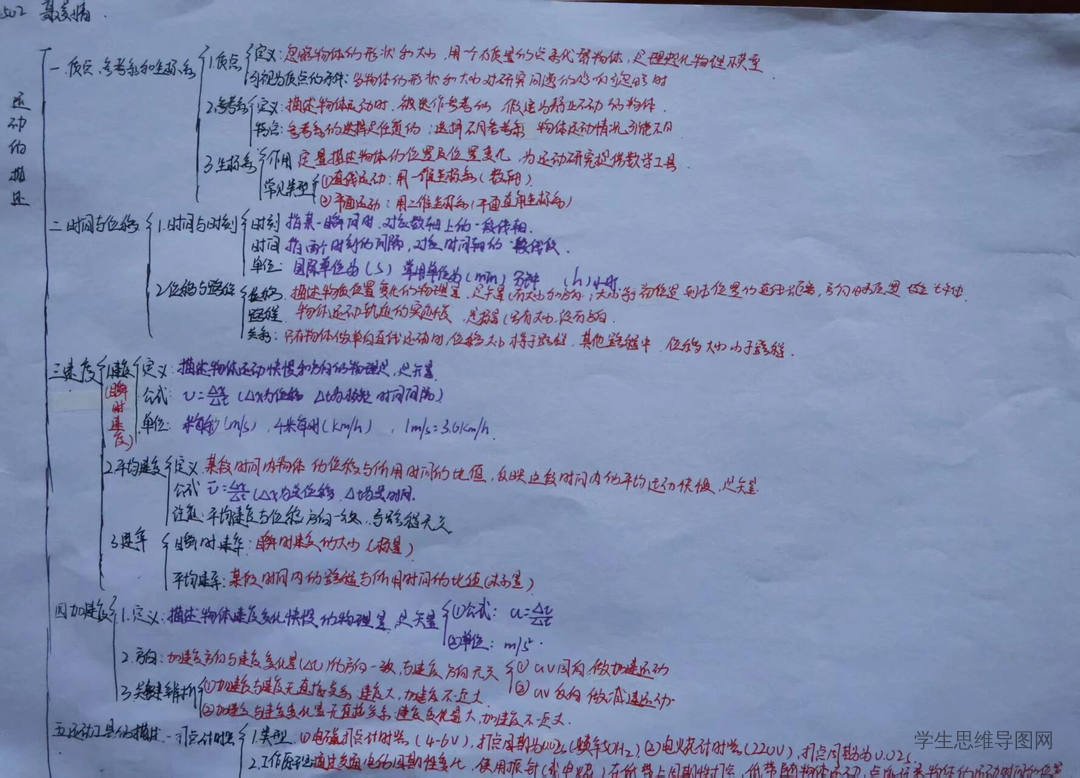 运动的描述
一.质点、参考系和坐标系
1.质点 定义:忽略物体的形状和大小,用一个有质量的点来代替物体,是理想化物理模型
可视为质点的条件:当物体的形状和大小对研究问题的影响可忽略时
2.参考系 定义:描述物体运动时,被选作参考的,假定为静止不动的物体.
特点:参考系的选择是任意的;选择不同参考系,物体运动情况可能不同
3.坐标系 作用 定量描述物体的位置及位置变化,为运动研究提供数学工具
常见类型 ①直线运动:用一维坐标系(数轴)
②平面运动:用二维坐标系(平面直角坐标系)
二.时间与位移 1.时间与时刻 时刻 指某一瞬间时,对应数轴上的一
时间 指两个时刻的间隔,对应时间轴的一段线段.
单位:国际单位为(s) 常用单位为(min)分钟 (h)小时
2.位移与路程 位移:描述物体位置变化的物理量,是矢量(有大小和方向);大小为初位置到末位置的
路程 物体运动轨迹的实际长 是标量(只有大小,没有方向.
关系:只有物体做单向直线运动时,位移大小等于路程.其他 中,位移大小小于路程.
三.速度 1.速度(瞬时速度) 定义:描述物体运动快慢和方向的物理量,是矢量.
公式:υ=Δx/Δt(Δx为位移 Δt为 时间间隔)
单位:米每秒(m/s),千米每时(km/h),1m/s=3.6km/h.
2.平均速度 定义 某段时间内物体的位移与所用时间的比值,反映这段时间内的平均运动快慢,是矢量.
公式 υ̅=Δx/Δt(Δx为 位移,Δt为 时间.
注意:平均速度与位移方向一致,与路程无关
3.速率 瞬时速率:瞬时速度的大小(标量)
平均速率:某段时间内的路程与所用时间的比值(标量)
四.加速度 1.定义:描述物体速度变化快慢的物理量,是矢量 ①公式:a=Δυ/Δt
②单位:m/s².
2.方向:加速度方向与速度变化量(Δυ)的方向一致,与速度方向无关 ①av同向 做加速运动
②av反向 做减速运动.
3.关键辨析 ①加速度与速度无直接关系 速度大,加速度不一定大
②加速度与速度变化量无直接关系 速度变化量大,加速度不一定大.
五.运动工具的描述一打点计时器 1.类型 ①电磁打点计时器(4-6V),打点周期为0.02s(频率50HZ) ②电火花计时器(220V),打点周期为0.02s
2.工作原理 通过交流电的周期性变化,使用振针
学生思维导图网